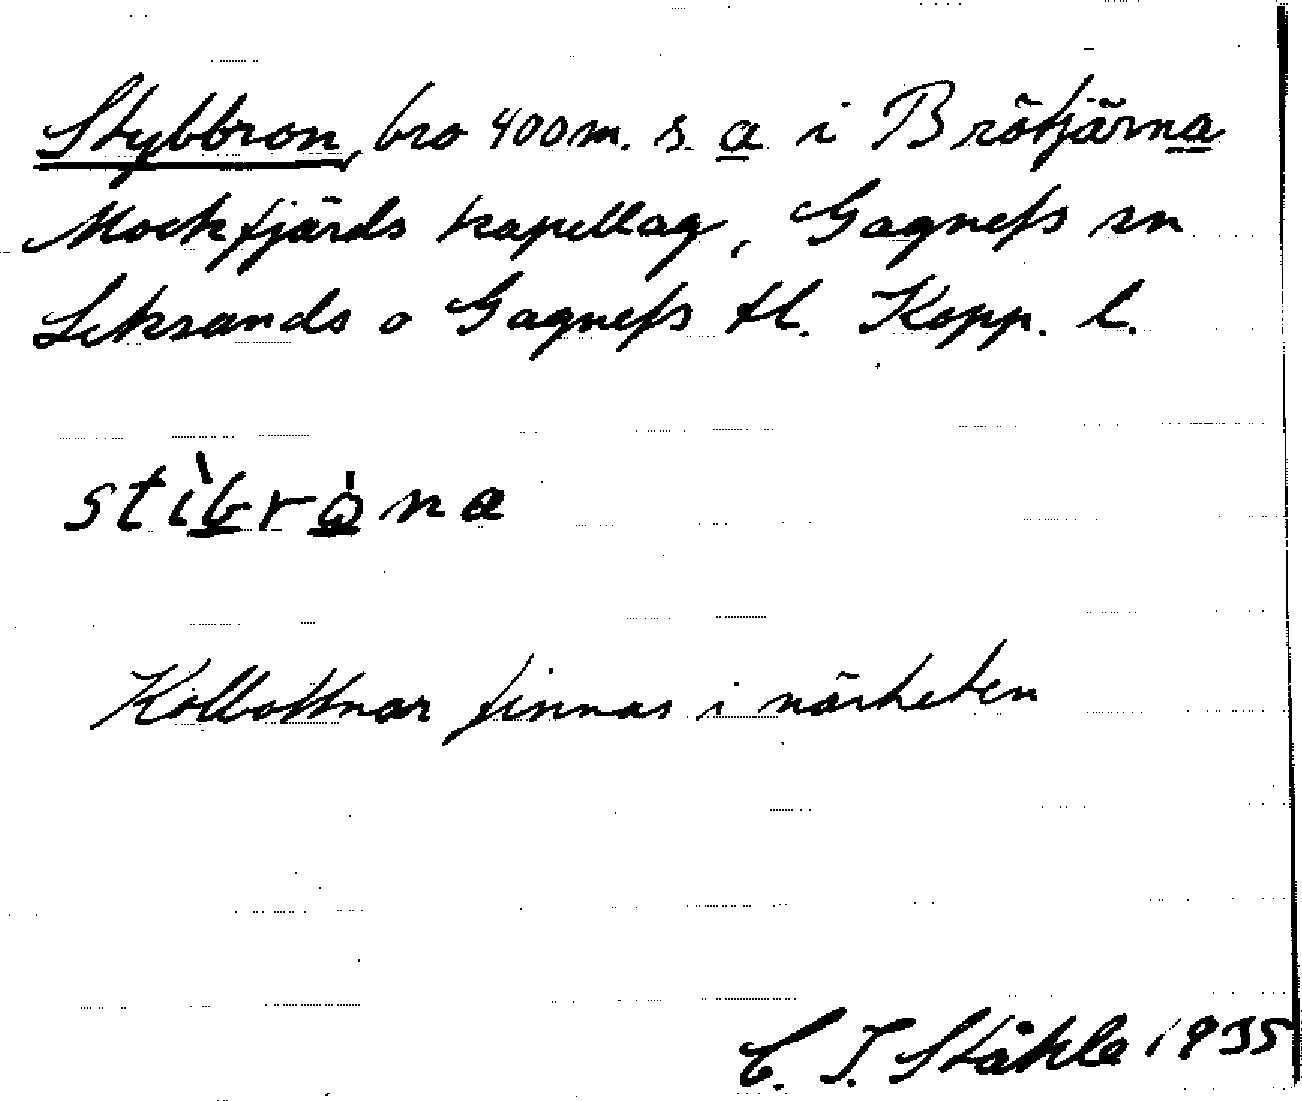 Stybbron, bro 400 m. s. a i Brötjärna
Mockfjärds kapellag, Gagnefs sn
Leksands o Gagnefs tl. Kopp. l.
stìbrò̱na
Kolbottnar finnas i närheten
C. I. Ståhle 1935